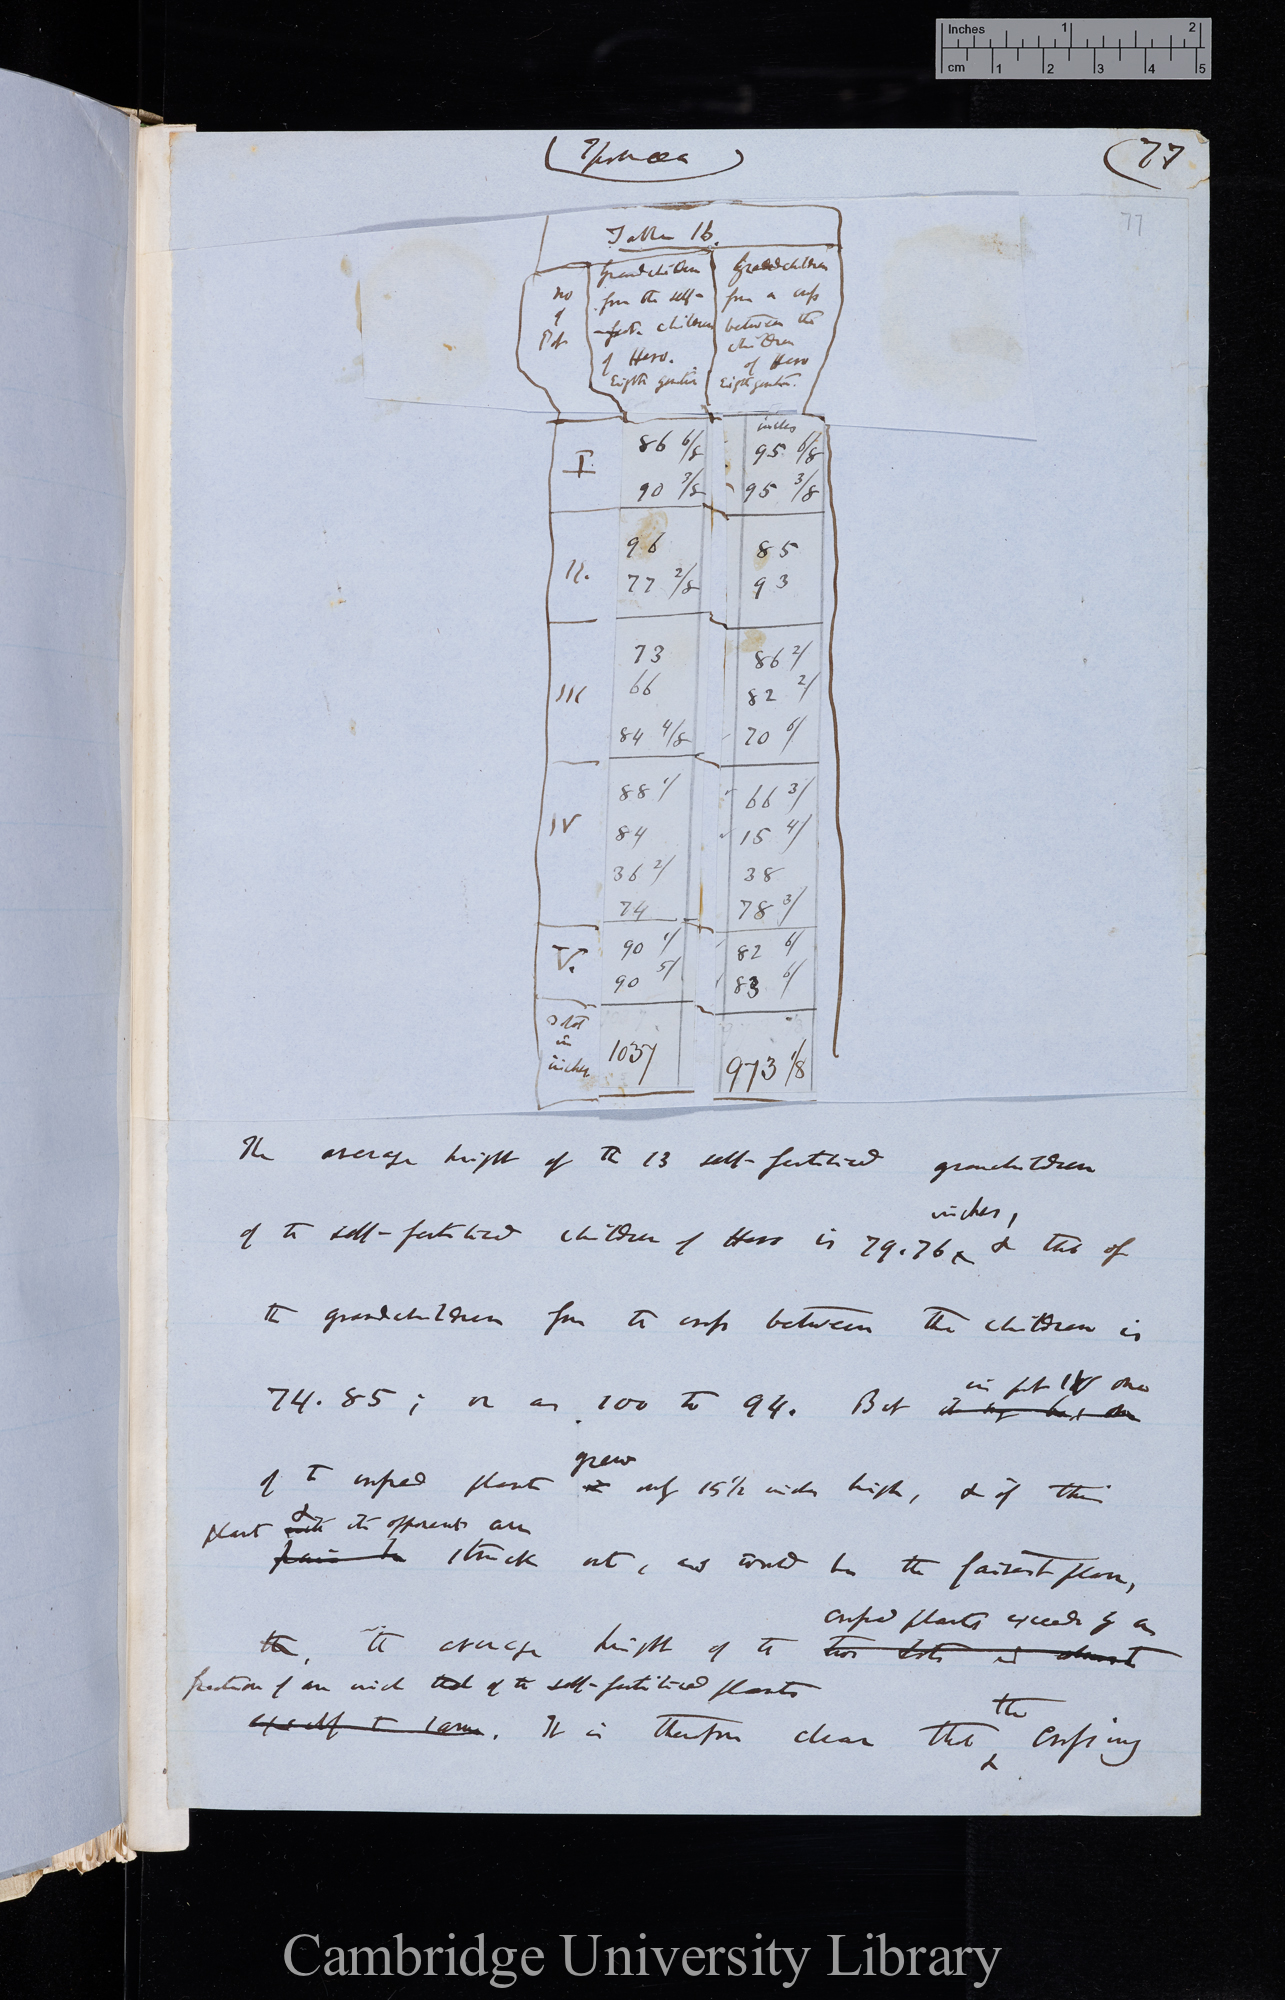 Inches 1 2
cm 1 2 3 4 5
(Ipomœa)
(77
77
Table 16.
No of Pot
Grandchildren from the self-fert. children of Hero. Eighth genertn
Grandchildren from a cross between the children of Hero Eighth genertn.
inches
I. 86 6/8 95 6/8
90 3/8 95 3/8
II. 96 85
77 2/8 93
III 73 86 2/
66 82 2/
84 4/8 70 6/
IV 88 1/ 66 3/
84 15 4/
36 2/ 38
74 78 3/
V. 90 1/ 82 6/
90 5/ 83 6/
Total in inches 1037 973 1/8
The average height of the 13 self-fertilised grandchildren
of the self-fertilised children of Hero is 79.76 inches, & that of
the grandchildren from the cross between the children is
74.85; or as 100 to 94. But in pot IV one
of the crossed plants grew only 15 1/2 inches high, & if this
plant & its opponent are struck out, as would be the fairest plan,
the average height of the crossed plants exceeds by a
fraction of an inch that of the self-fertilised plants
. It is therefore clear that the crossing
Cambridge University Library